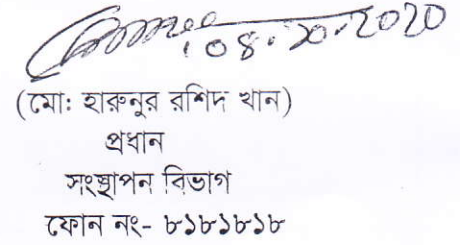 ০৪.১০.২০২০
(মো: হারুনুর রশিদ খান)
প্রধান
সংস্থাপন বিভাগ
ফোন নং- ৮১৮১৮১৮